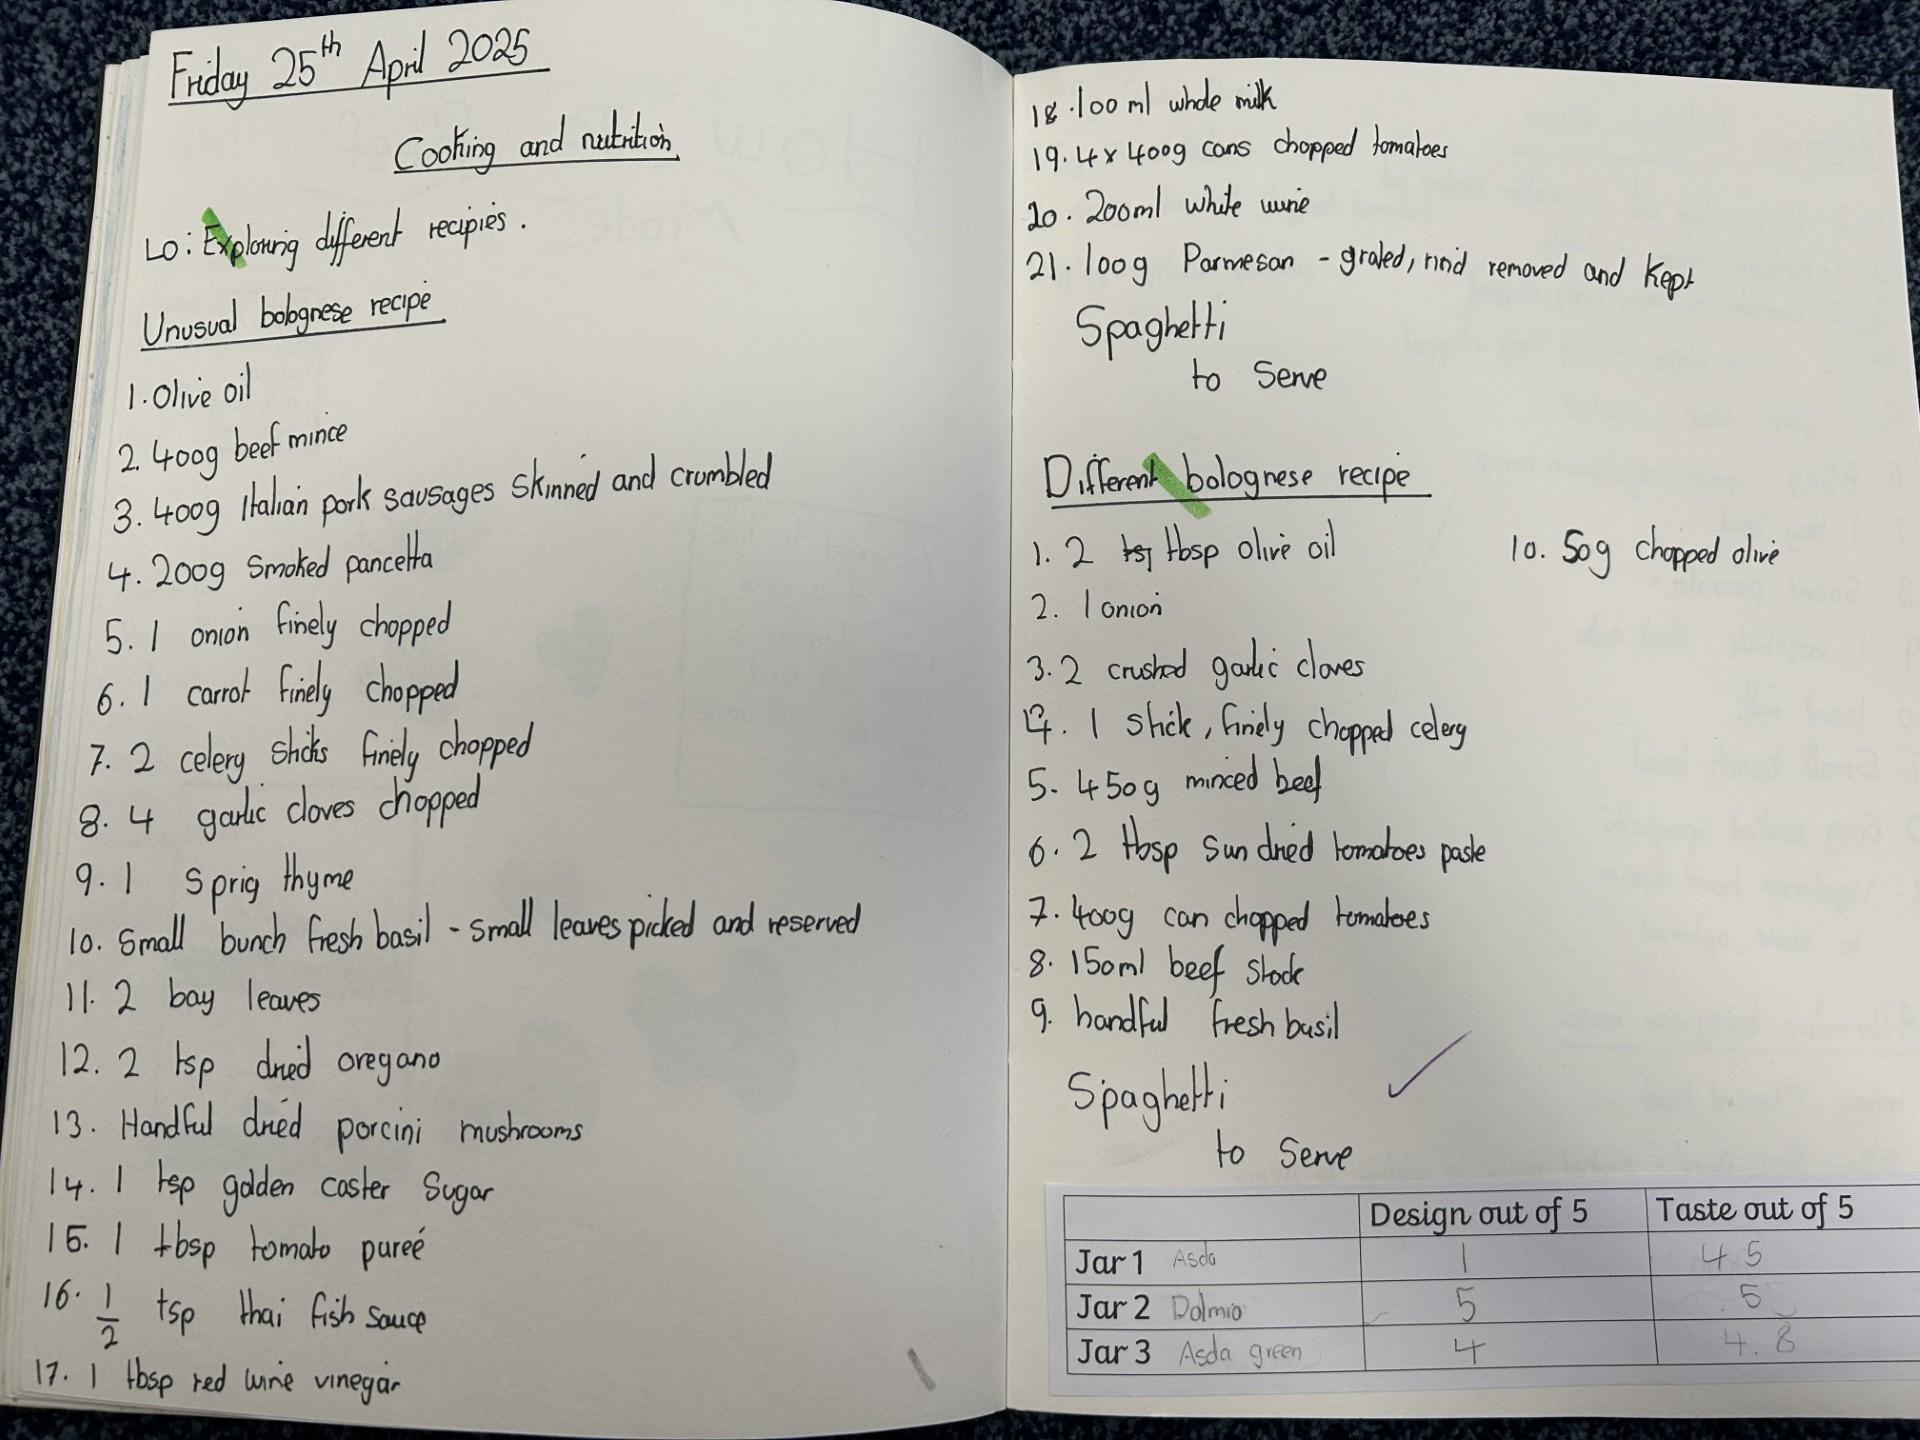 Friday 25th April 2025
Cooking and nutrition
LO: Exploring different recipies.
Unusual bolognese recipe
1. Olive oil
2. 400g beef mince
3. 400g Italian pork sausages skinned and crumbled
4. 200g smoked pancetta
5. 1 onion finely chopped
6. 1 carrot finely chopped
7. 2 celery sticks finely chopped
8. 4 garlic cloves chopped
9. 1 sprig thyme
10. Small bunch fresh basil - small leaves picked and reserved
11. 2 bay leaves
12. 2 tsp dried oregano
13. Handful dried porcini mushrooms
14. 1 tsp golden caster Sugar
15. 1 tbsp tomato pureé
16. 1/2 tsp thai fish sauce
17. 1 tbsp red wine vinegar
18. 100ml whole milk
19. 4x 400g cans chopped tomatoes
20. 200ml white wine
21. 100g Parmesan - grated, rind removed and kept
Spaghetti
to Serve
Different bolognese recipe
1. 2 tbsp olive oil
2. 1 onion
3. 2 crushed garlic cloves
4. 1 stick, finely chopped celery
5. 450g minced beef
6. 2 tbsp sun dried tomatoes paste
7. 400g can chopped tomatoes
8. 150ml beef stock
9. handful fresh basil
10. 50g chopped olive
Spaghetti
to Serve
Design out of 5 Taste out of 5
Jar 1 Asda 1 4.5
Jar 2 Dolmio 5 5
Jar 3 Asda green 4 4.8